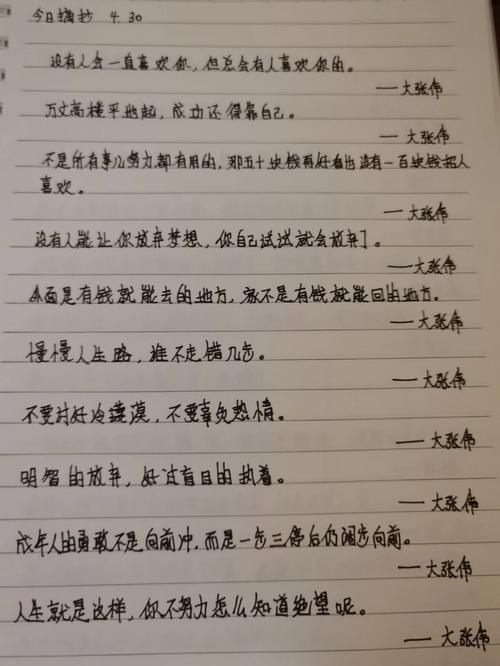 今日摘抄 4.30
没有人会一直喜欢你，但总会有人喜欢你的。
——大张伟
万丈高楼平地起，成功还得靠自己。
——大张伟
不是所有事儿努力都有用的，那五十块钱再好看也没有一百块钱招人
喜欢。
——大张伟
没有人能让你放弃梦想，你自己试试就会放弃了。
——大张伟
外面是有钱就能去的地方，家不是有钱就能回的地方。
——大张伟
慢慢人生路，谁不走错几步。
——大张伟
不要讨好冷漠，不要辜负热情。
——大张伟
明智的放弃，好过盲目的执着。
——大张伟
成年人的勇敢不是向前冲，而是一步三停后仍阔步向前。
——大张伟
人生就是这样，你不努力怎么知道绝望呢。
——大张伟